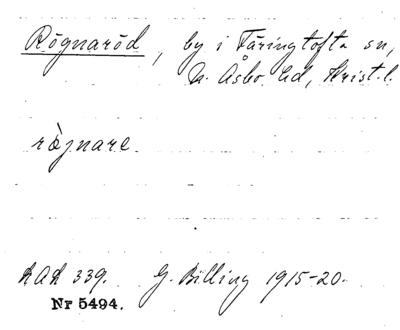 Rögnaröd, by i Färingtofta sn,
N. Åsbo hd, Krist. l.
ræ̀jnare
LAL 339. G. Billing 1915-20.
Nr 5494.